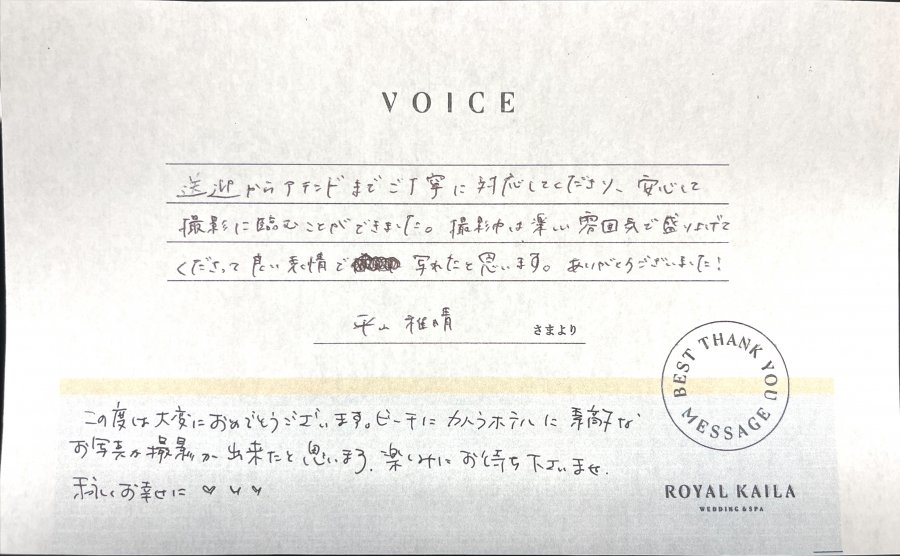 VOICE
送迎からアテンドまでご丁寧に対応してくださり、安心して
撮影に臨むことができました。撮影中は楽しい雰囲気で盛り上げて
くださって良い表情で 写れたと思います。ありがとうございました!
平山 雅晴
さまより
BEST THANK YOU MESSAGE
この度は大変におめでとうございます。ビーチに カハラホテルに 素敵な
お写真が撮影が出来たと思います。楽しみにお待ち下さいませ。
末永くお幸せに ♡ ♡ ♡
ROYAL KAILA
WEDDING & SPA